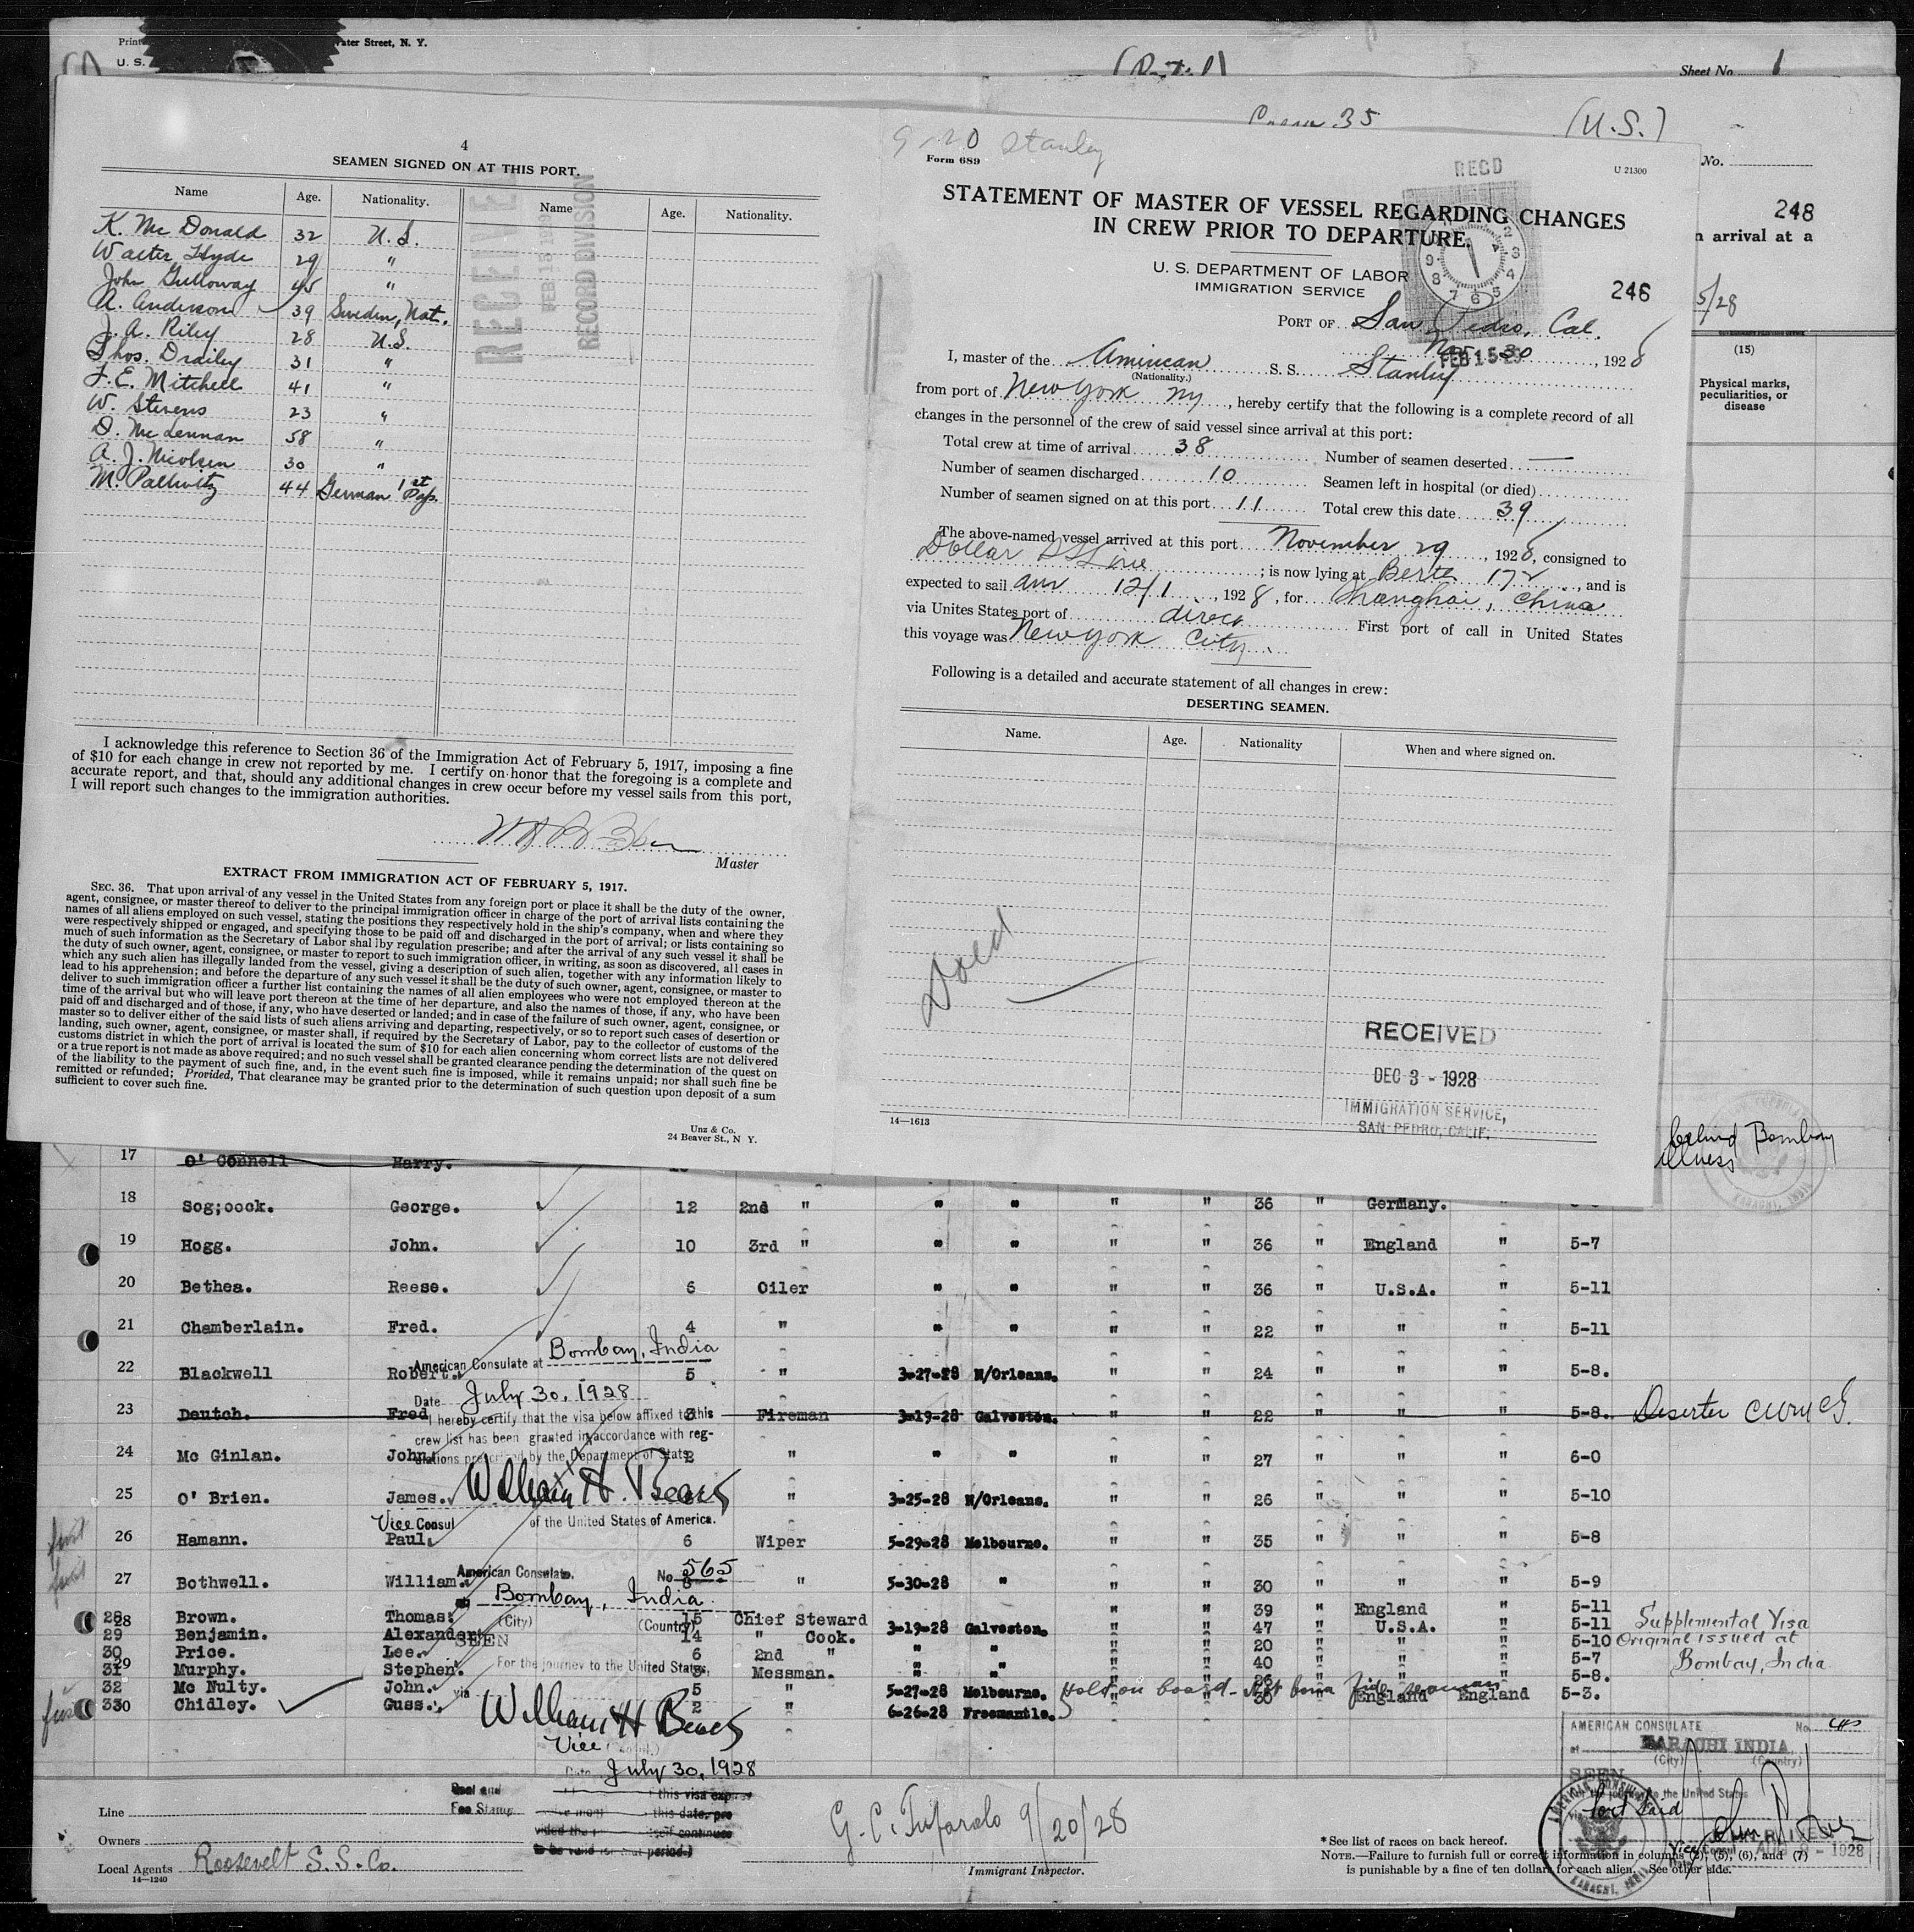 Water Street, N. Y.
U. S.
Sheet No. 1
35
(U.S.)
No.
248
arrival at a
5/28
(15)
Physical marks, peculiarities, or disease
4
SEAMEN SIGNED ON AT THIS PORT.
Name Age. Nationality. Name Age. Nationality.
K. Mc Donald 32 U.S.
Walter Hyde 29 "
John Gulloway 45 "
A. Anderson 39 Sweden, Nat.
J. A. Riley 28 U.S.
Thos. Drailey 31 "
F. E. Mitchell 41 "
W. Stevens 23 "
D. Mc Lennan 58 "
A. J. Nicolsen 30 "
M. Pallwitz 44 German 1st Pap.
RECEIVED
FEB 15 192
RECORD DIVISION
I acknowledge this reference to Section 36 of the Immigration Act of February 5, 1917, imposing a fine
of $10 for each change in crew not reported by me. I certify on honor that the foregoing is a complete and
accurate report, and that, should any additional changes in crew occur before my vessel sails from this port,
I will report such changes to the immigration authorities.
Master
EXTRACT FROM IMMIGRATION ACT OF FEBRUARY 5, 1917.
SEC. 36. That upon arrival of any vessel in the United States from any foreign port or place it shall be the duty of the owner,
agent, consignee, or master thereof to deliver to the principal immigration officer in charge of the port of arrival lists containing the
names of all aliens employed on such vessel, stating the positions they respectively hold in the ship's company, when and where they
were respectively shipped or engaged, and specifying those to be paid off and discharged in the port of arrival; or lists containing so
much of such information as the Secretary of Labor shal lby regulation prescribe; and after the arrival of any such vessel it shall be
the duty of such owner, agent, consignee, or master to report to such immigration officer, in writing, as soon as discovered, all cases in
which any such alien has illegally landed from the vessel, giving a description of such alien, together with any information likely to
lead to his apprehension; and before the departure of any such vessel it shall be the duty of such owner, agent, consignee, or master to
deliver to such immigration officer a further list containing the names of all alien employees who were not employed thereon at the
time of the arrival but who will leave port thereon at the time of her departure, and also the names of those, if any, who have been
paid off and discharged and of those, if any, who have deserted or landed; and in case of the failure of such owner, agent, consignee, or
master so to deliver either of the said lists of such aliens arriving and departing, respectively, or so to report such cases of desertion or
landing, such owner, agent, consignee, or master shall, if required by the Secretary of Labor, pay to the collector of customs of the
customs district in which the port of arrival is located the sum of $10 for each alien concerning whom correct lists are not delivered
or a true report is not made as above required; and no such vessel shall be granted clearance pending the determination of the quest on
of the liability to the payment of such fine, and, in the event such fine is imposed, while it remains unpaid; nor shall such fine be
remitted or refunded; Provided, That clearance may be granted prior to the determination of such question upon deposit of a sum
sufficient to cover such fine.
Unz & Co.
24 Beaver St., N Y.
9-20 Stanley
Form 689
RECD
U 21300
STATEMENT OF MASTER OF VESSEL REGARDING CHANGES
IN CREW PRIOR TO DEPARTURE.
U. S. DEPARTMENT OF LABOR
IMMIGRATION SERVICE
246
PORT OF San Pedro, Cal.
Nov. 30, 1928
FEB 15 29
I, master of the American S. S. Stanley
(Nationality.)
from port of New York NY, hereby certify that the following is a complete record of all
changes in the personnel of the crew of said vessel since arrival at this port:
Total crew at time of arrival 38 Number of seamen deserted —
Number of seamen discharged 10 Seamen left in hospital (or died)
Number of seamen signed on at this port 11 Total crew this date 39
The above-named vessel arrived at this port November 29, 1928, consigned to
Dollar SS Line; is now lying at Berth 172, and is
expected to sail am 12/1, 1928, for Shanghai, China
via Unites States port of direct First port of call in United States
this voyage was New York City.
Following is a detailed and accurate statement of all changes in crew:
DESERTING SEAMEN.
Name. Age. Nationality When and where signed on.
RECEIVED
DEC 3 - 1928
IMMIGRATION SERVICE,
SAN PEDRO, CALIF.
14—1613
behind Bombay
illness
17 O' Connell Harry.
18 Sog;oock. George. 12 2nd " " " " " 36 " Germany. "
19 Hogg. John. 10 3rd " " " " " 36 " England " 5-7
20 Bethea. Reese. 6 Oiler " " " " 36 " U.S.A. " 5-11
21 Chamberlain. Fred. 4 " " " " " 22 " " " 5-11
22 Blackwell Robert. 5 " 3-27-28 N/Orleans. " " 24 " " " 5-8.
23 Deutch. Fred 3 Fireman 3-19-28 Galveston. " " 22 " " " 5-8. Deserter
24 Mc Ginlan. John. 2 " " " " " 27 " " " 6-0
25 O' Brien. James. " 3-25-28 N/Orleans. " " 26 " " " 5-10
26 Hamann. Paul. 6 Wiper 5-29-28 Melbourne. " " 35 " " " 5-8
27 Bothwell. William. 8 " 5-30-28 " " " 30 " " " 5-9
28 Brown. Thomas. 15 Chief Steward " " 39 " England " 5-11
29 Benjamin. Alexander. 14 " Cook. 3-19-28 Galveston. " " 47 " U.S.A. " 5-11
30 Price. Lee. 6 2nd " " " " " 20 " " " 5-10
31 Murphy. Stephen. 3 Messman. " " " " 40 " " " 5-7
32 Mc Nulty. John. 5 " 5-27-28 Melbourne. " " 26 " " " 5-8.
33 Chidley. Guss. 2 " 6-26-28 Freemantle. " " 30 " England England 5-3.
Hold on board - Not bona fide seaman
Supplemental Visa
Original issued at
Bombay, India
American Consulate at Bombay, India
Date July 30, 1928
I hereby certify that the visa below affixed to this
crew list has been granted in accordance with reg-
ulations prescribed by the Department of State
William H. Beach
Vice Consul of the United States of America.
American Consulate. No. 565
at Bombay, India
(City) (Country)
SEEN
For the journey to the United States,
via
William H Beach
Vice
Date July 30, 1928
Seal and
Fee Stamp
this date, pro
period.)
Line
Owners
Local Agents Roosevelt S. S. Co.
14—1240
G. C. Tufarolo 9/20/28
Immigrant Inspector.
AMERICAN CONSULATE No.
at KARACHI INDIA
(City) (Country)
SEEN
the United States
via Port Said
Vice Consul
1928
AMERICAN CONSULATE
KARACHI, INDIA
*See list of races on back hereof.
NOTE.—Failure to furnish full or correct information in columns (2), (5), (6), and (7)
is punishable by a fine of ten dollars for each alien. See other side.